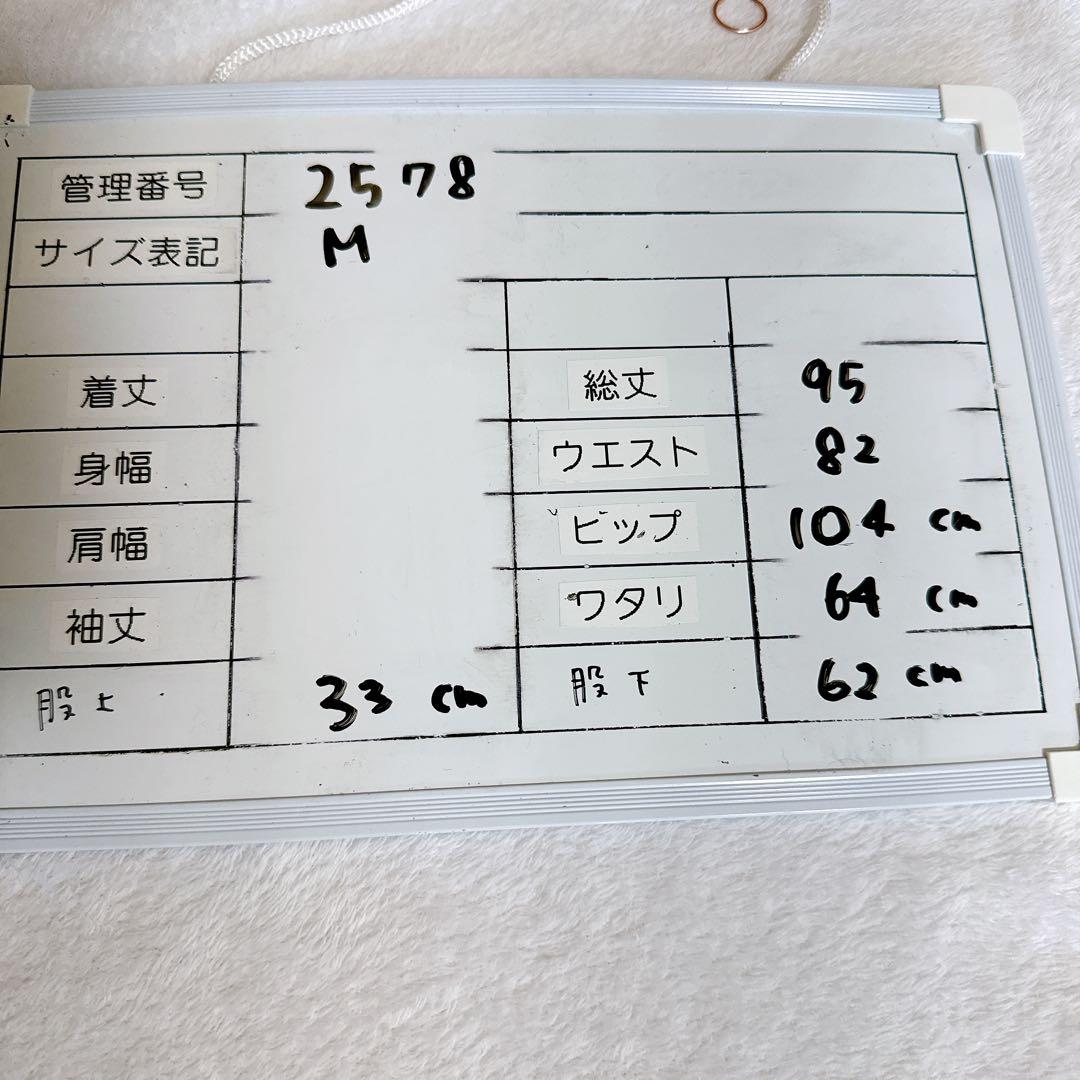 管理番号 2578
サイズ表記 M
着丈 総丈 95
身幅 ウエスト 82
肩幅 ヒップ 104 cm
袖丈 ワタリ 64 cm
股上 33 cm 股下 62 cm